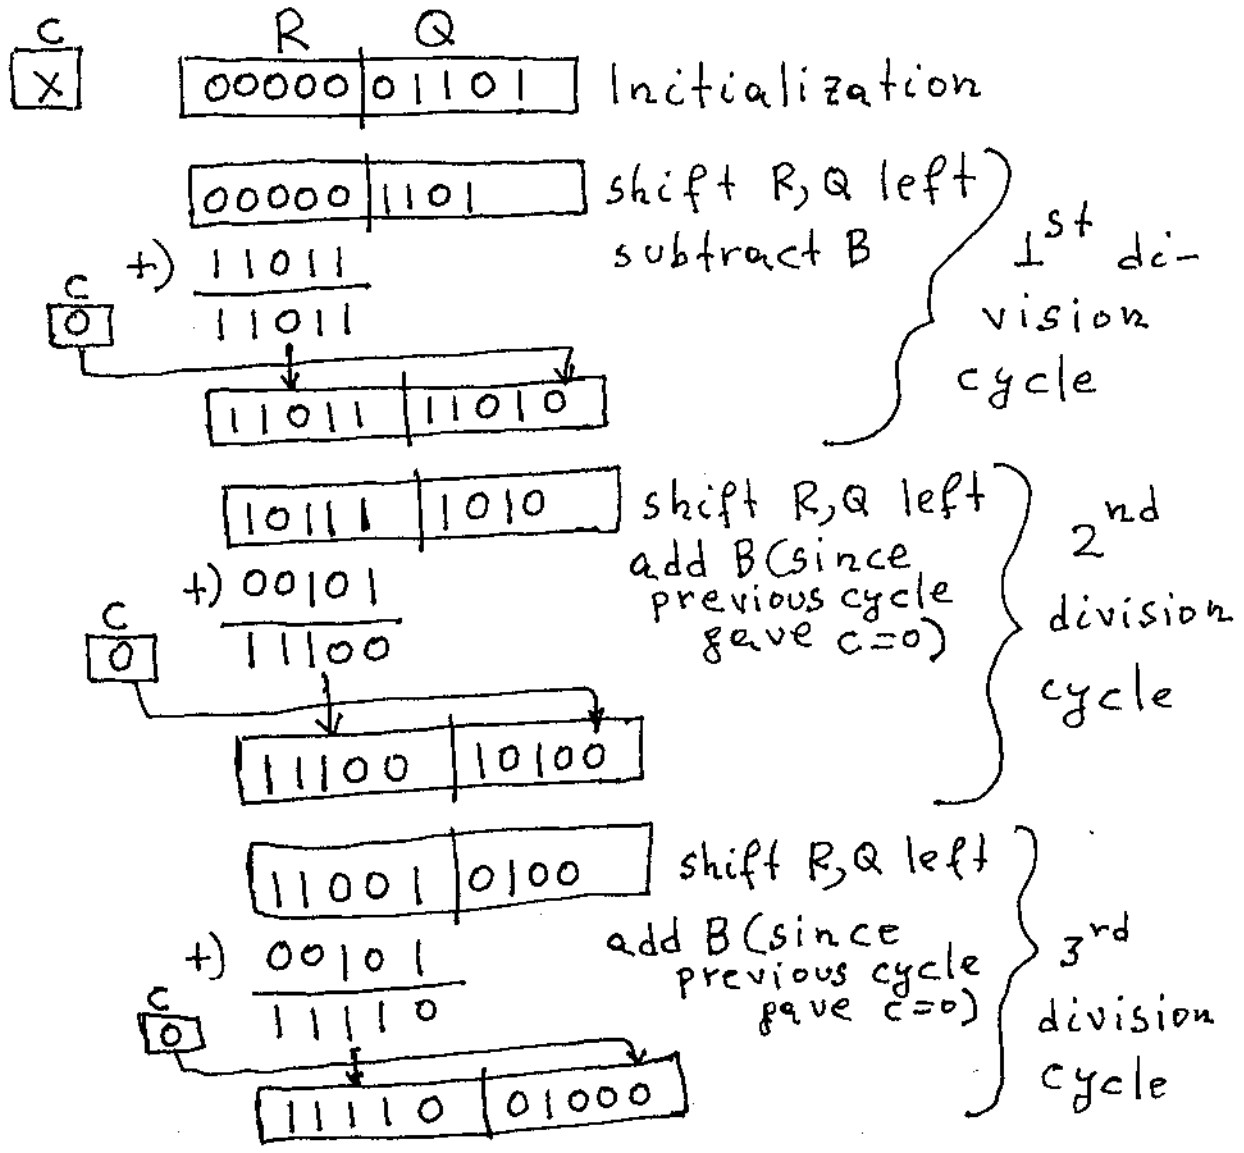 C R Q
X 00000 01101 Initialization
00000 1101 shift R, Q left
+) 11011 subtract B
C
0 11011
11011 11010
1st di-
vision
cycle
10111 1010 shift R, Q left
+) 00101 add B (since
previous cycle
gave c=0)
C
0 11100
11100 10100
2nd
division
cycle
11001 0100 shift R, Q left
+) 00101 add B (since
previous cycle
gave c=0)
C
0 11110
11110 01000
3rd
division
cycle